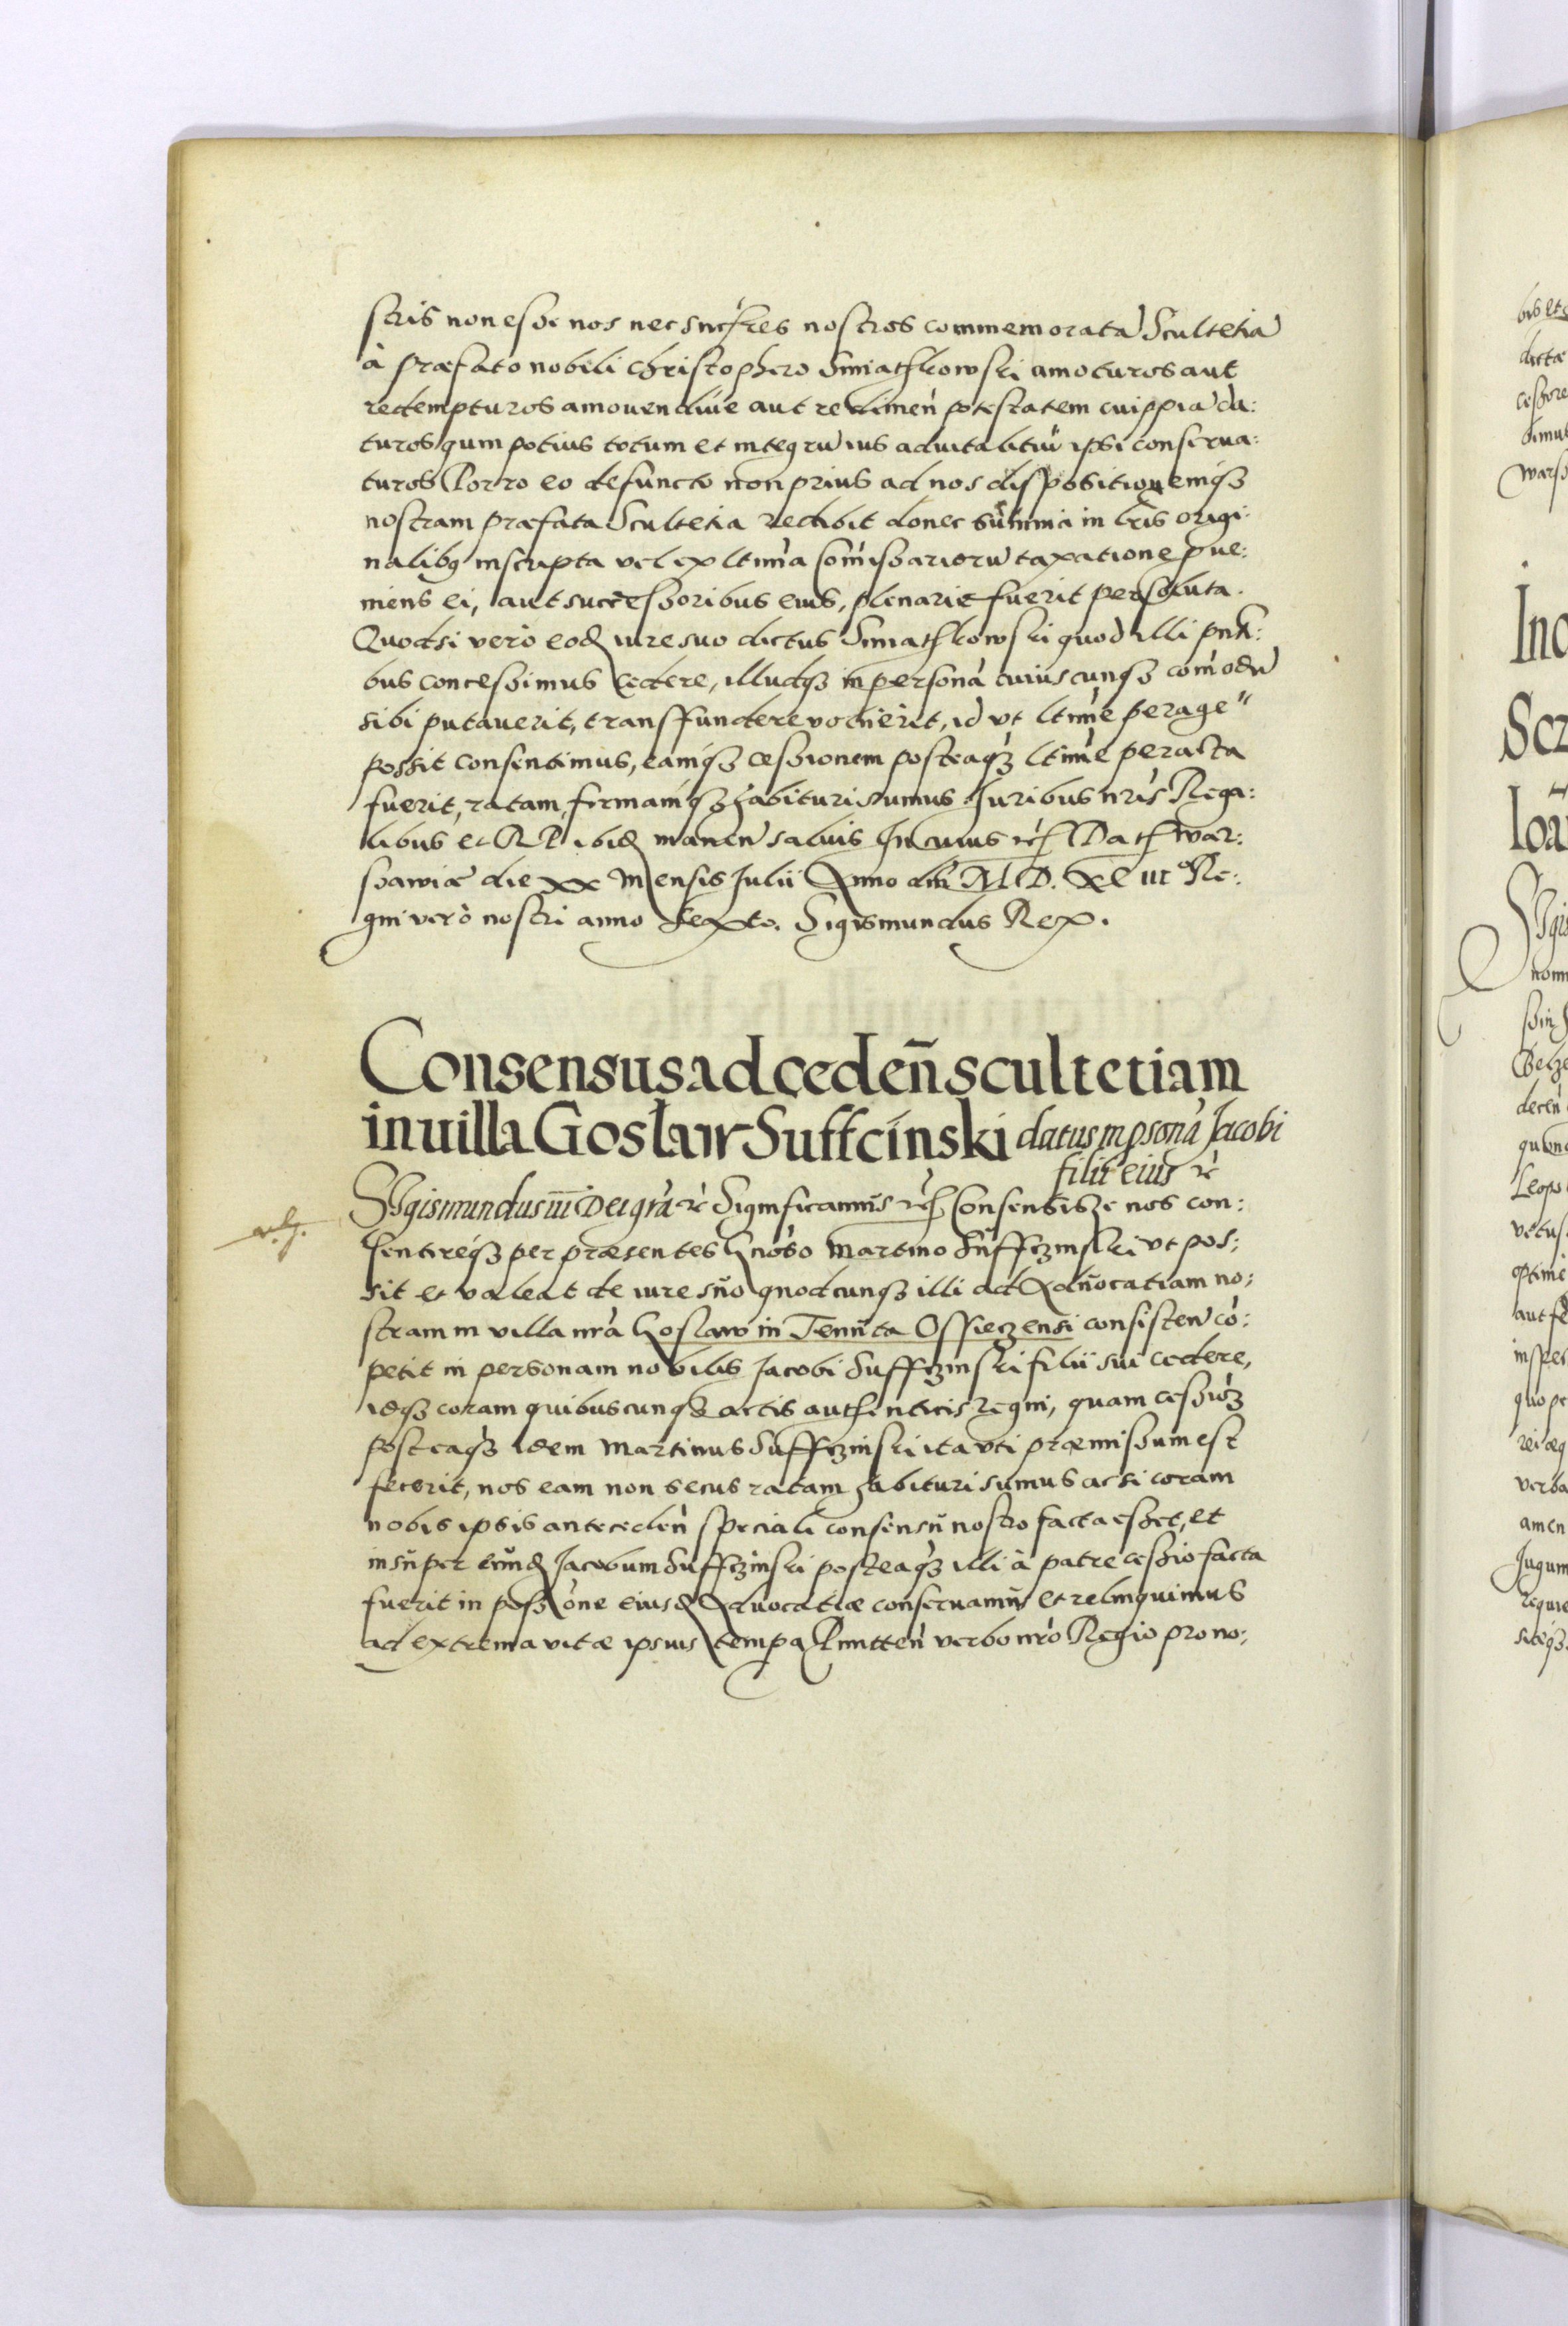 stris non esse nos nec succres nostros commemorata Scultetia
à præfato nobili Christophero Smiathkowski amoturos aut
redempturos amouendiue aut redimen potestatem cuippiā da:
turos quin potius totum et integrū ius aduitalitiū ipsi conserua:
turos Porro eo defuncto non prius ad nos dispositionemqȝ
nostram præfata Scultetia redibit donec summa in lris origi:
nalibȝ inscripta vel ex ltima comissariorū taxatione pue:
niens ei, aut successoribus eius, plenarie fuerit persoluta.
Quodsi vero eod iure suo dictus Smiathkowski quod illi pnti:
bus concessimus cedere, illudqȝ in personā cuiuscunqȝ comodū
sibi putauerit, transffundere voluerit, id vt ltime perage"
possit consentimus, eamqȝ cessionem posteaqȝ ltime peracta
fuerit, ratam, firmamqȝ habituri sumus Juribus nris Rega:
libus et RP ibid manen saluis In cuius rei Dat War:
ssawiæ die xx mensis Julii Anno dni M D. XC iiiᵒ Re:
gni vero nostri anno Sexto. Sigismundus Rex.
Consensus ad cedeñ scultetiam
in uilla Gosław Suffcinski datus in psonā Jacobi
filii eius rc
Sigismundus iii Dei gra rc Significamus rc Consensisse nos con:
sentireqȝ per præsentes Gnoso Martino Suffczinski vt pos:
sit et valeat de iure suo quodcunqȝ illi ad Aduocatiam no:
stram in villa nra Goslaw in Tenuta Ossieczensi consisten cō:
petit in personam nobilis Jacobi Suffczinski filii sui cedere,
idqȝ coram quibuscunqȝ actis authenticis regni, quam cessioȝ
posteaqȝ idem Martinus Suffczinski ita vti præmissum est
fecerit, nos eam non secus ratam habituri sumus ac si coram
nobis ipsis anteceden speciali consensu nostro facta esset, et
insuper eund Jacobum Suffczinski posteaqȝ illi à patre cessio facta
fuerit in possone eiusd Aduocatiæ conseruamus et relinquimus
ad extrema vitæ ipsius tempa Pmitten verbo nro Regio pro no: